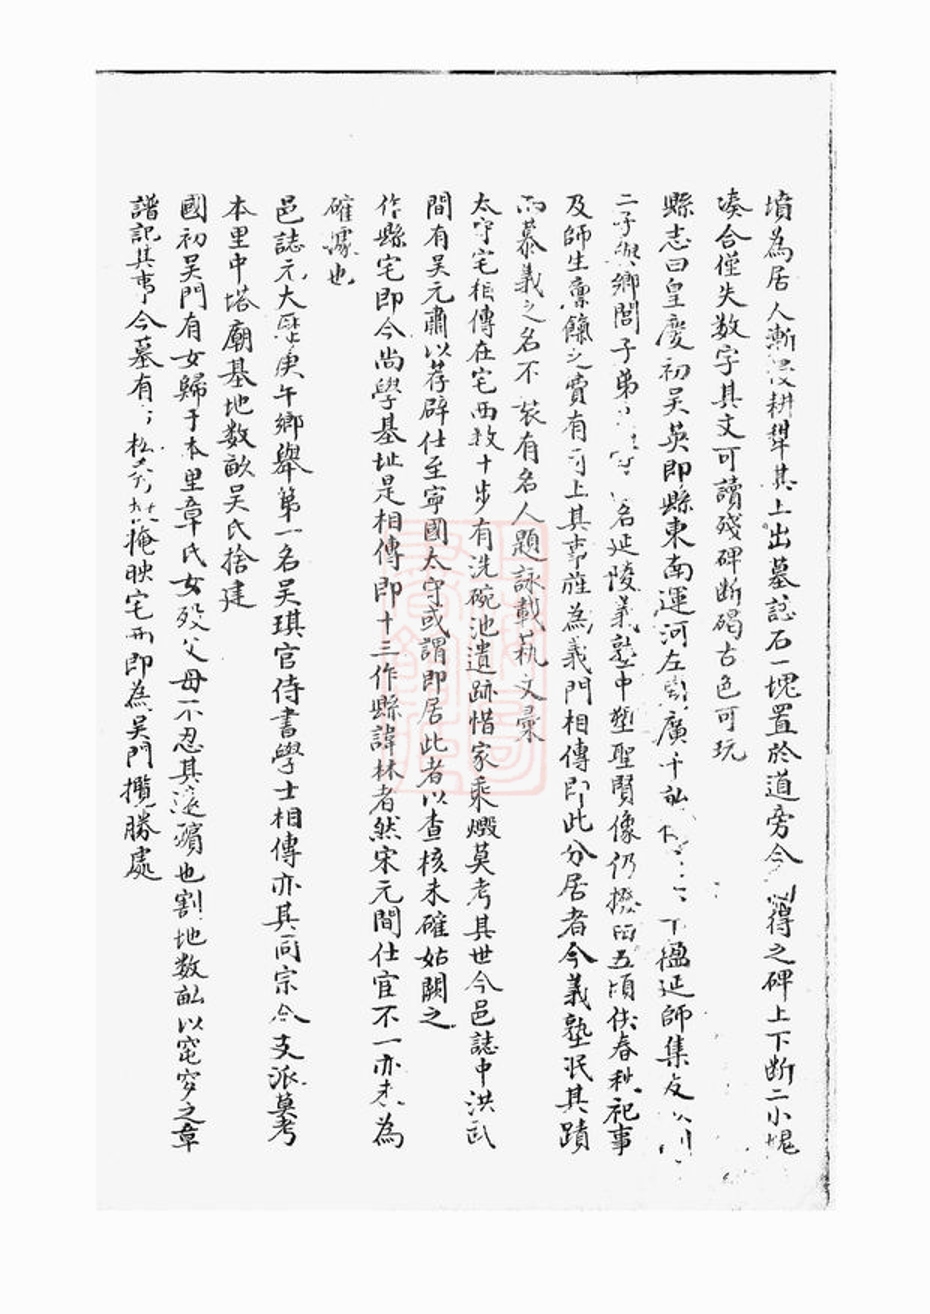 墳為居人漸侵耕犂其上出墓誌石一塊置於道旁今得之碑上下斷二小塊
凑合僅失数字其文可讀殘碑断碣古色可玩
縣志曰皇慶初吴英即縣東南運河左廣千畆楹延師集友
二子與鄉閭子弟名延陵義塾中塑聖賢像仍撥田五頃供春秋祀事
及師生稟餼之費有司上其事旌為義門相傳即此分居者今義塾泯其蹟
而慕義之名不衰有名人題詠載萟文彙
太守宅相傳在宅西数十步有洗碗池遺跡惜家乘燬莫考其世今邑誌中洪武
間有吴元肅以荐辟仕至寧國太守或謂即居此者以查核未確姑闕之
作縣宅即今尚學基址是相傳即十三作縣諱林者然宋元間仕宦不一亦未為
確據也
邑誌元大歴庚午鄉舉第一名吴琪官侍書學士相傳亦其同宗今支派莫考
本里中塔廟基地数畝吴氏捨建
國初吴門有女歸于本里章氏女殁父母不忍其遠殯也割地数畆以窀穸之章
譜記其事今墓有松掩映宅西即為吴門攬勝處